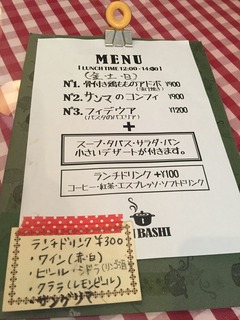 MENU
[LUNCH TIME 12:00-14:00]
(金土日)
Nº1. 骨付き鶏もものアドボ ¥900
Nº2. サンマのコンフィ ¥900
Nº3. フィデウア ¥1200
(パスタのパエリア)
+
スープ・タパス・サラダ・パン
小さいデザートが付きます。
ランチドリンク +¥100
コーヒー・紅茶・エスプレッソ・ソフトドリンク
BASHI
ランチドリンク ¥300
・ワイン(赤・白)
・ビール・シドラ(りんご酒)
・クララ(レモンビール)
・サングリア